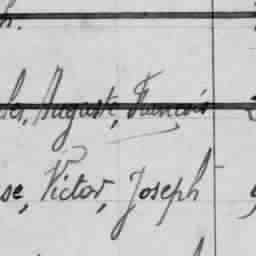 h.
les, Auguste, François
se, Victor, Joseph